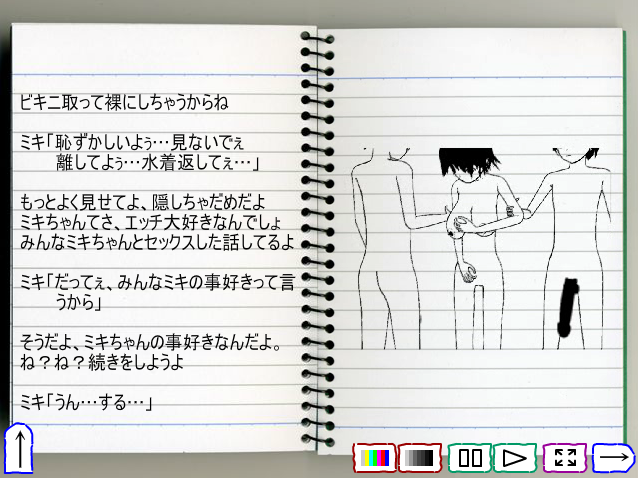 ビキニ取って裸にしちゃうからね
ミキ「恥ずかしいよぅ…見ないでぇ
離してよぅ…水着返してぇ…」
もっとよく見せてよ、隠しちゃだめだよ
ミキちゃんてさ、エッチ大好きなんでしょ
みんなミキちゃんとセックスした話してるよ
ミキ「だってぇ、みんなミキの事好きって言
うから」
そうだよ、ミキちゃんの事好きなんだよ。
ね？ね？続きをしようよ
ミキ「うん…する…」